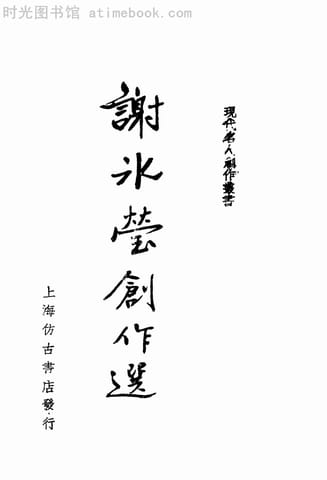 时光图书馆 — atimebook.com
現代名人創作叢書
謝冰瑩創作選
上海仿古書店發行